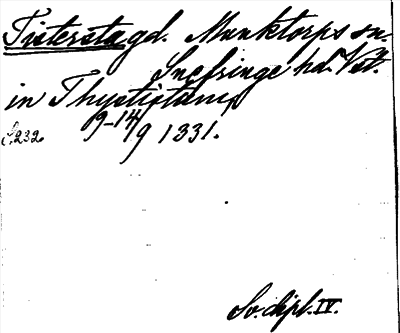 Tistersta gd. Munktorps sn.
Snefringe hd. Vstm.
in Thystistamp
9-14/9 1331.
S. 232.
Sv. dipl. IV.